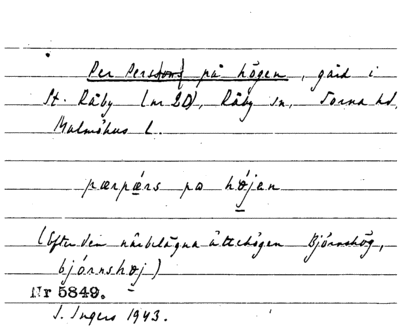 Per Persson på högen, gård i
St. Råby (nr 20), Råby sn, Torna hd,
Malmöhus l.
pærpǽrs pɑ højen
(Efter den närbelägna ättehögen Bjórnshög,
bjórnshøj)
Nr 5849.
I. Ingers 1943.